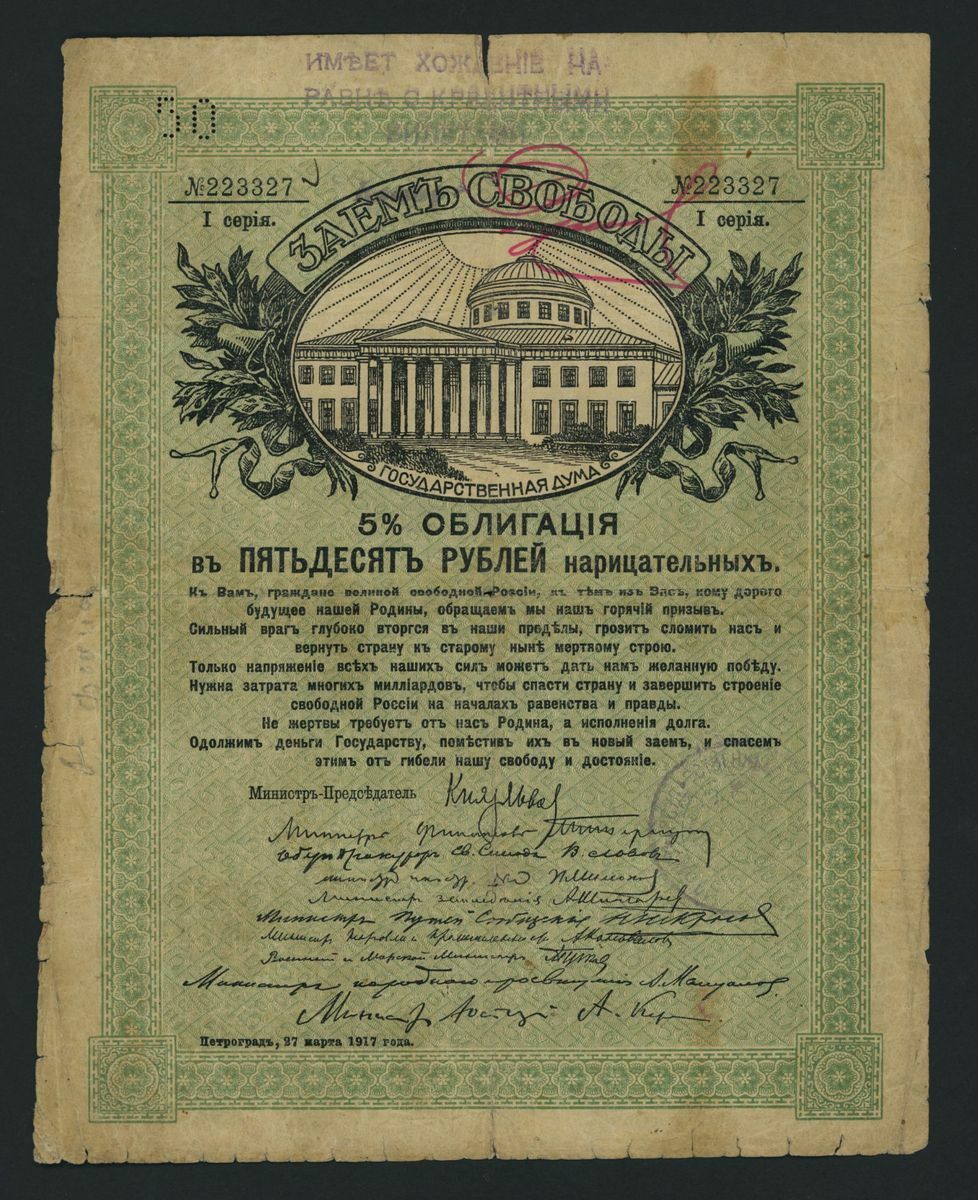 ИМѢЕТ ХОЖДЕНІЕ НА-
РАВНѢ С КРЕДИТНЫМИ
БИЛЕТАМИ
50
№223327
№223327
I серія.
I серія.
ЗАЕМЪ СВОБОДЫ
ГОСУДАРСТВЕННАЯ ДУМА
5% ОБЛИГАЦІЯ
въ ПЯТЬДЕСЯТЪ РУБЛЕЙ нарицательныхъ.
Къ Вамъ, граждане великой свободной Россіи, къ тѣмъ изъ Васъ, кому дорого
будущее нашей Родины, обращаемъ мы нашъ горячій призывъ.
Сильный врагъ глубоко вторгся въ наши предѣлы, грозитъ сломить насъ и
вернуть страну къ старому нынѣ мертвому строю.
Только напряженіе всѣхъ нашихъ силъ можетъ дать намъ желанную побѣду.
Нужна затрата многихъ милліардовъ, чтобы спасти страну и завершить строеніе
свободной Россіи на началахъ равенства и правды.
Не жертвы требуетъ отъ насъ Родина, а исполненія долга.
Одолжимъ деньги Государству, помѣстивъ ихъ въ новый заемъ, и спасемъ
этимъ отъ гибели нашу свободу и достояніе.
Министръ-Предсѣдатель Князь Львов
Министръ Финансовъ
Оберъ Прокуроръ Св. Синода В. Львовъ
П. Милюков
Министръ земледѣлія А. Шингарев
Министръ Путей Сообщенія Н. Некрасов
Министръ Торговли и Промышленности А. Коновалов
Военный и Морской Министръ А. Гучков
Министръ народнаго просвѣщенія А. Мануйлов
Министръ Юстиціи А. Кер
Петроградъ, 27 марта 1917 года.